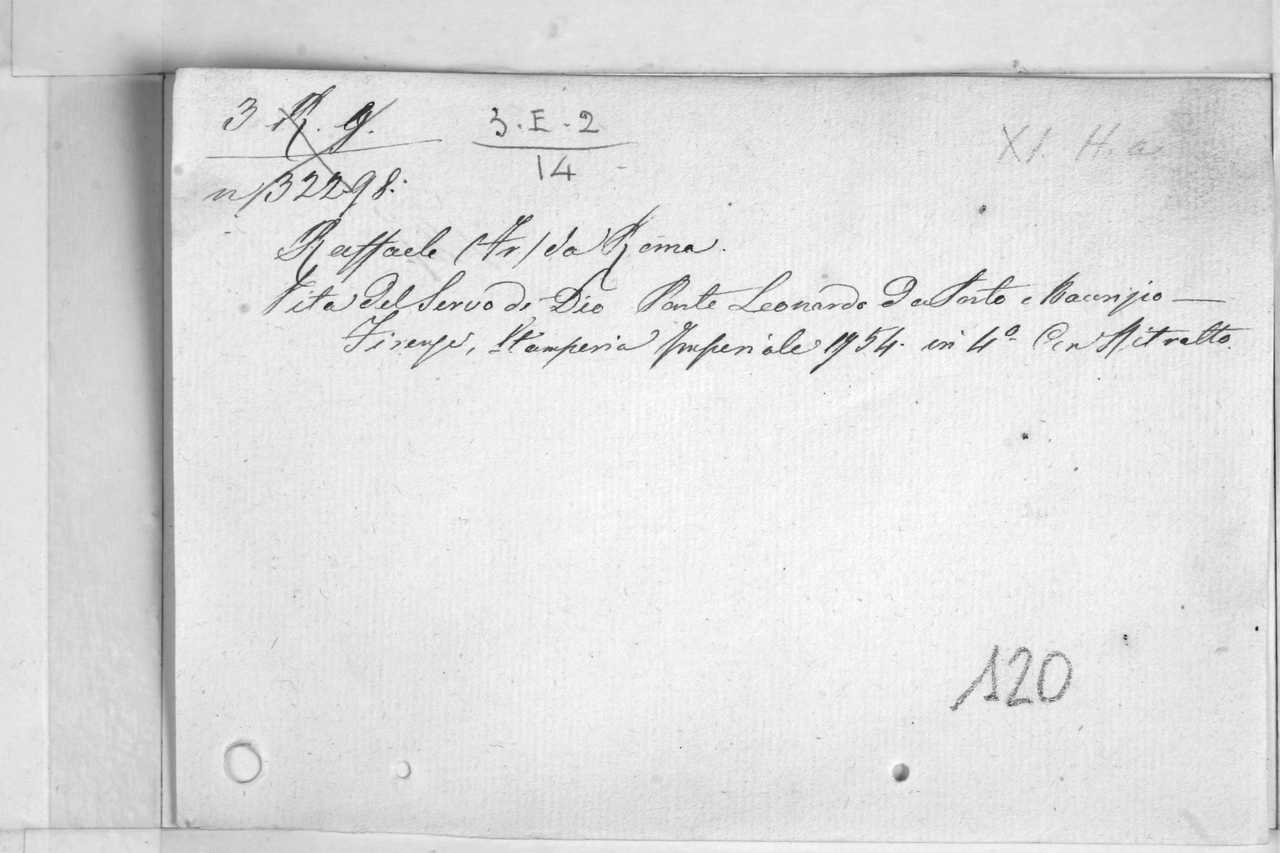 3 R. g. 3.E.2
n/32298. 14
XI. H. a
Raffaele (Fr) da Roma.
Vita del Servo di Dio Leonardo da Porto Maurizio —
Firenze, Stamperia Imperiale 1754. in 4º Con Ritratto.
120